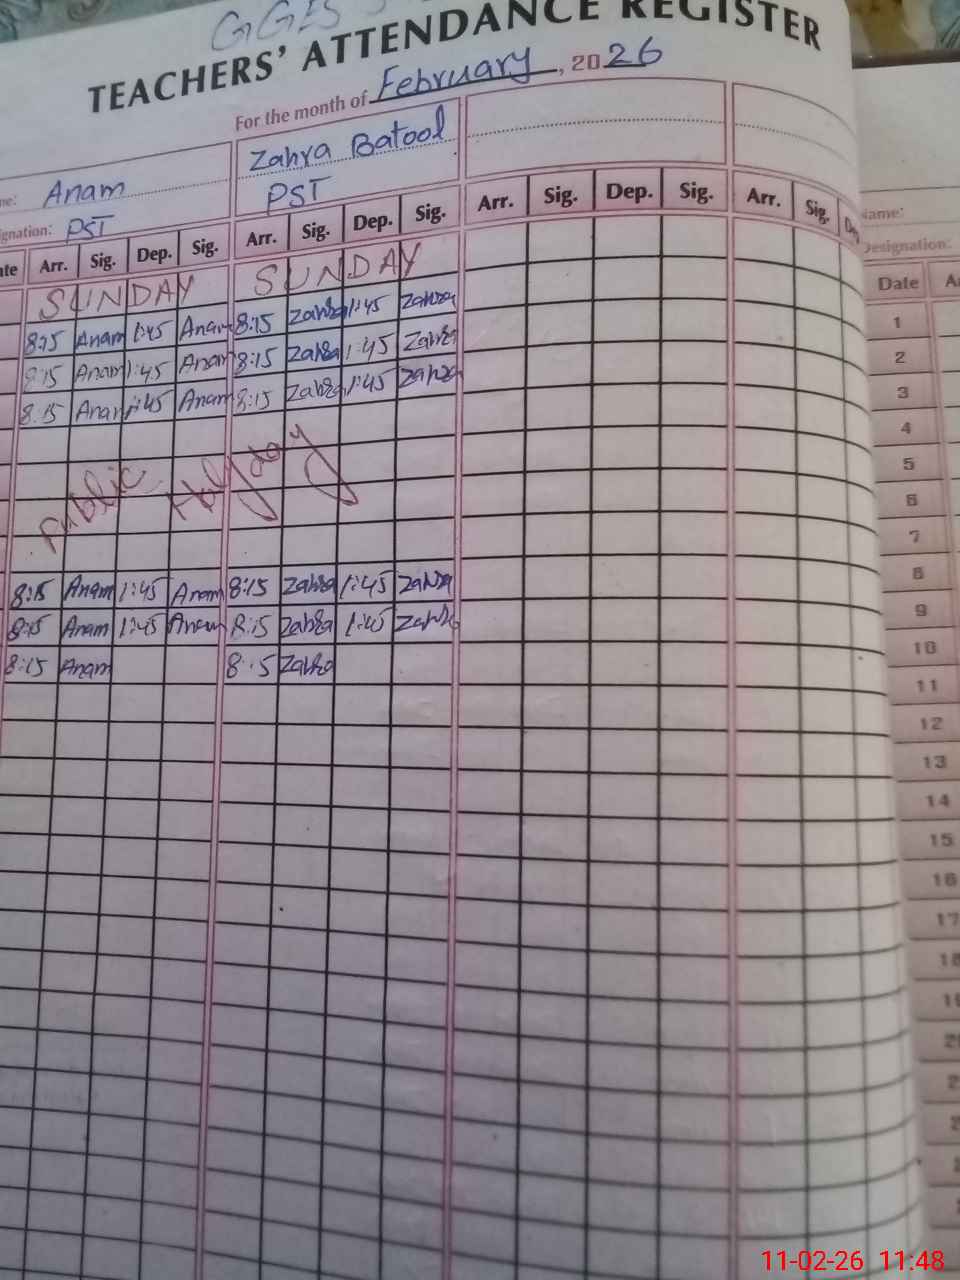 GGES
TEACHERS' ATTENDANCE REGISTER
For the month of February, 2026
me: Anam Zahra Batool
gnation: PST PST
ate Arr. Sig. Dep. Sig. Arr. Sig. Dep. Sig. Arr. Sig. Dep. Sig. Arr. Sig. Dep
SUNDAY SUNDAY
8:15 Anam 1:45 Anam 8:15 Zahra 1:45 Zahra
8:15 Anam 1:45 Anam 8:15 Zahra 1:45 Zahra
8:15 Anam 1:45 Anam 8:15 Zahra 1:45 Zahra
Public Holyday
8:15 Anam 1:45 Anam 8:15 Zahra 1:45 Zahra
8:15 Anam 1:45 Anam 8:15 Zahra 1:45 Zahra
8:15 Anam 8:15 Zahra
Name:
Designation:
Date Ar
1
2
3
4
5
6
7
8
9
10
11
12
13
14
15
16
17
18
11-02-26 11:48